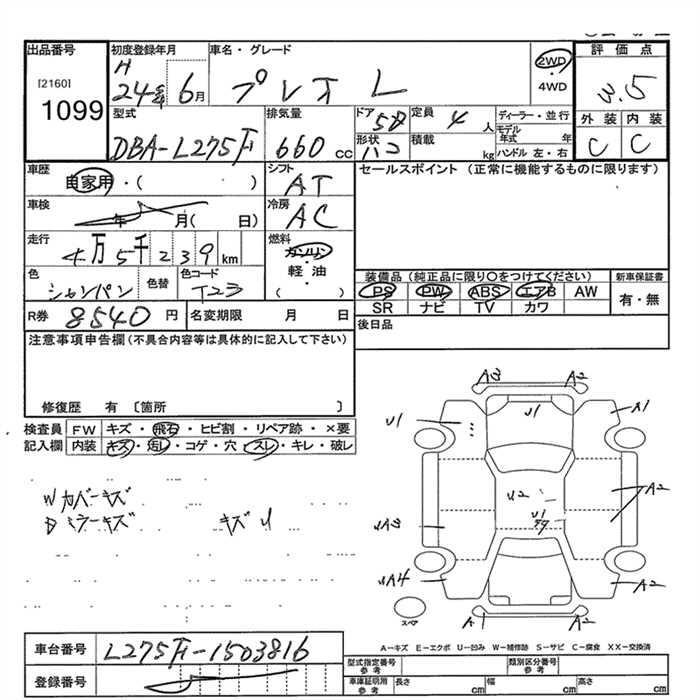 出品番号 初度登録年月 車名・グレード 2WD ・ 4WD 評価点
[2160] H 24年 6月 プレオ L 3.5
1099 型式 排気量 ドア 5D 定員 4 人 ディーラー・並行 外装 内装
DBA-L275F 660 cc 形状 ハコ 積載 kg モデル年式 年 ハンドル 左・右 C C
車歴 自家用・( ) シフト AT セールスポイント (正常に機能するものに限ります)
車検 年 月( 日) 冷房 AC
走行 4万5千239 km 燃料 ガソリン ・ 軽油 ( )
色 シャンパン 色替 色コード T23 装備品 (純正品に限り○をつけてください) 新車保証書
PS PW ABS エアB AW 有・無
SR ナビ TV カワ
R券 8540 円 名変期限 月 日 後日品
注意事項申告欄 (不具合内容等は具体的に記入して下さい)
修復歴 有 〔箇所 〕
検査員 FW キズ・飛石・ヒビ割・リペア跡・×要
記入欄 内装 キズ・汚レ・コゲ・穴・スレ・キレ・破レ
Wカバーキズ
Bミラーキズ キズU
A3 A2
U1 U1 A1
U2 A2
U1
UA3
UA4 A2
スペア A1 A2
A−キズ E−エクボ U−凹み W−補修跡 S−サビ C−腐食 XX−交換済
車台番号 L275F-1503816
登録番号
型式指定番号 参考 類別区分番号 参考
車庫証明用 参考 長さ cm 幅 cm 高さ cm